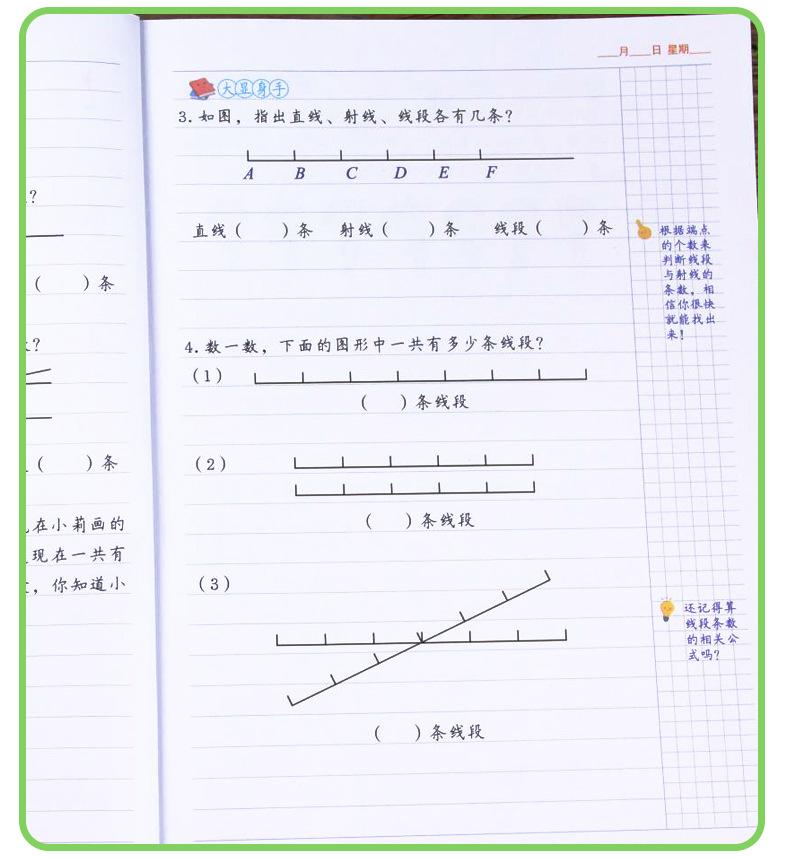 月 日 星期
大显身手
3. 如图，指出直线、射线、线段各有几条？
A B C D E F
直线（ ）条 射线（ ）条 线段（ ）条
根据端点
的个数来
判断线段
与射线的
条数，相
信你很快
就能找出
来！
4. 数一数，下面的图形中一共有多少条线段？
（1）
（ ）条线段
（2）
（ ）条线段
（3）
（ ）条线段
还记得算
线段条数
的相关公
式吗？
？
（ ）条
？
（ ）条
在小莉画的
现在一共有
，你知道小